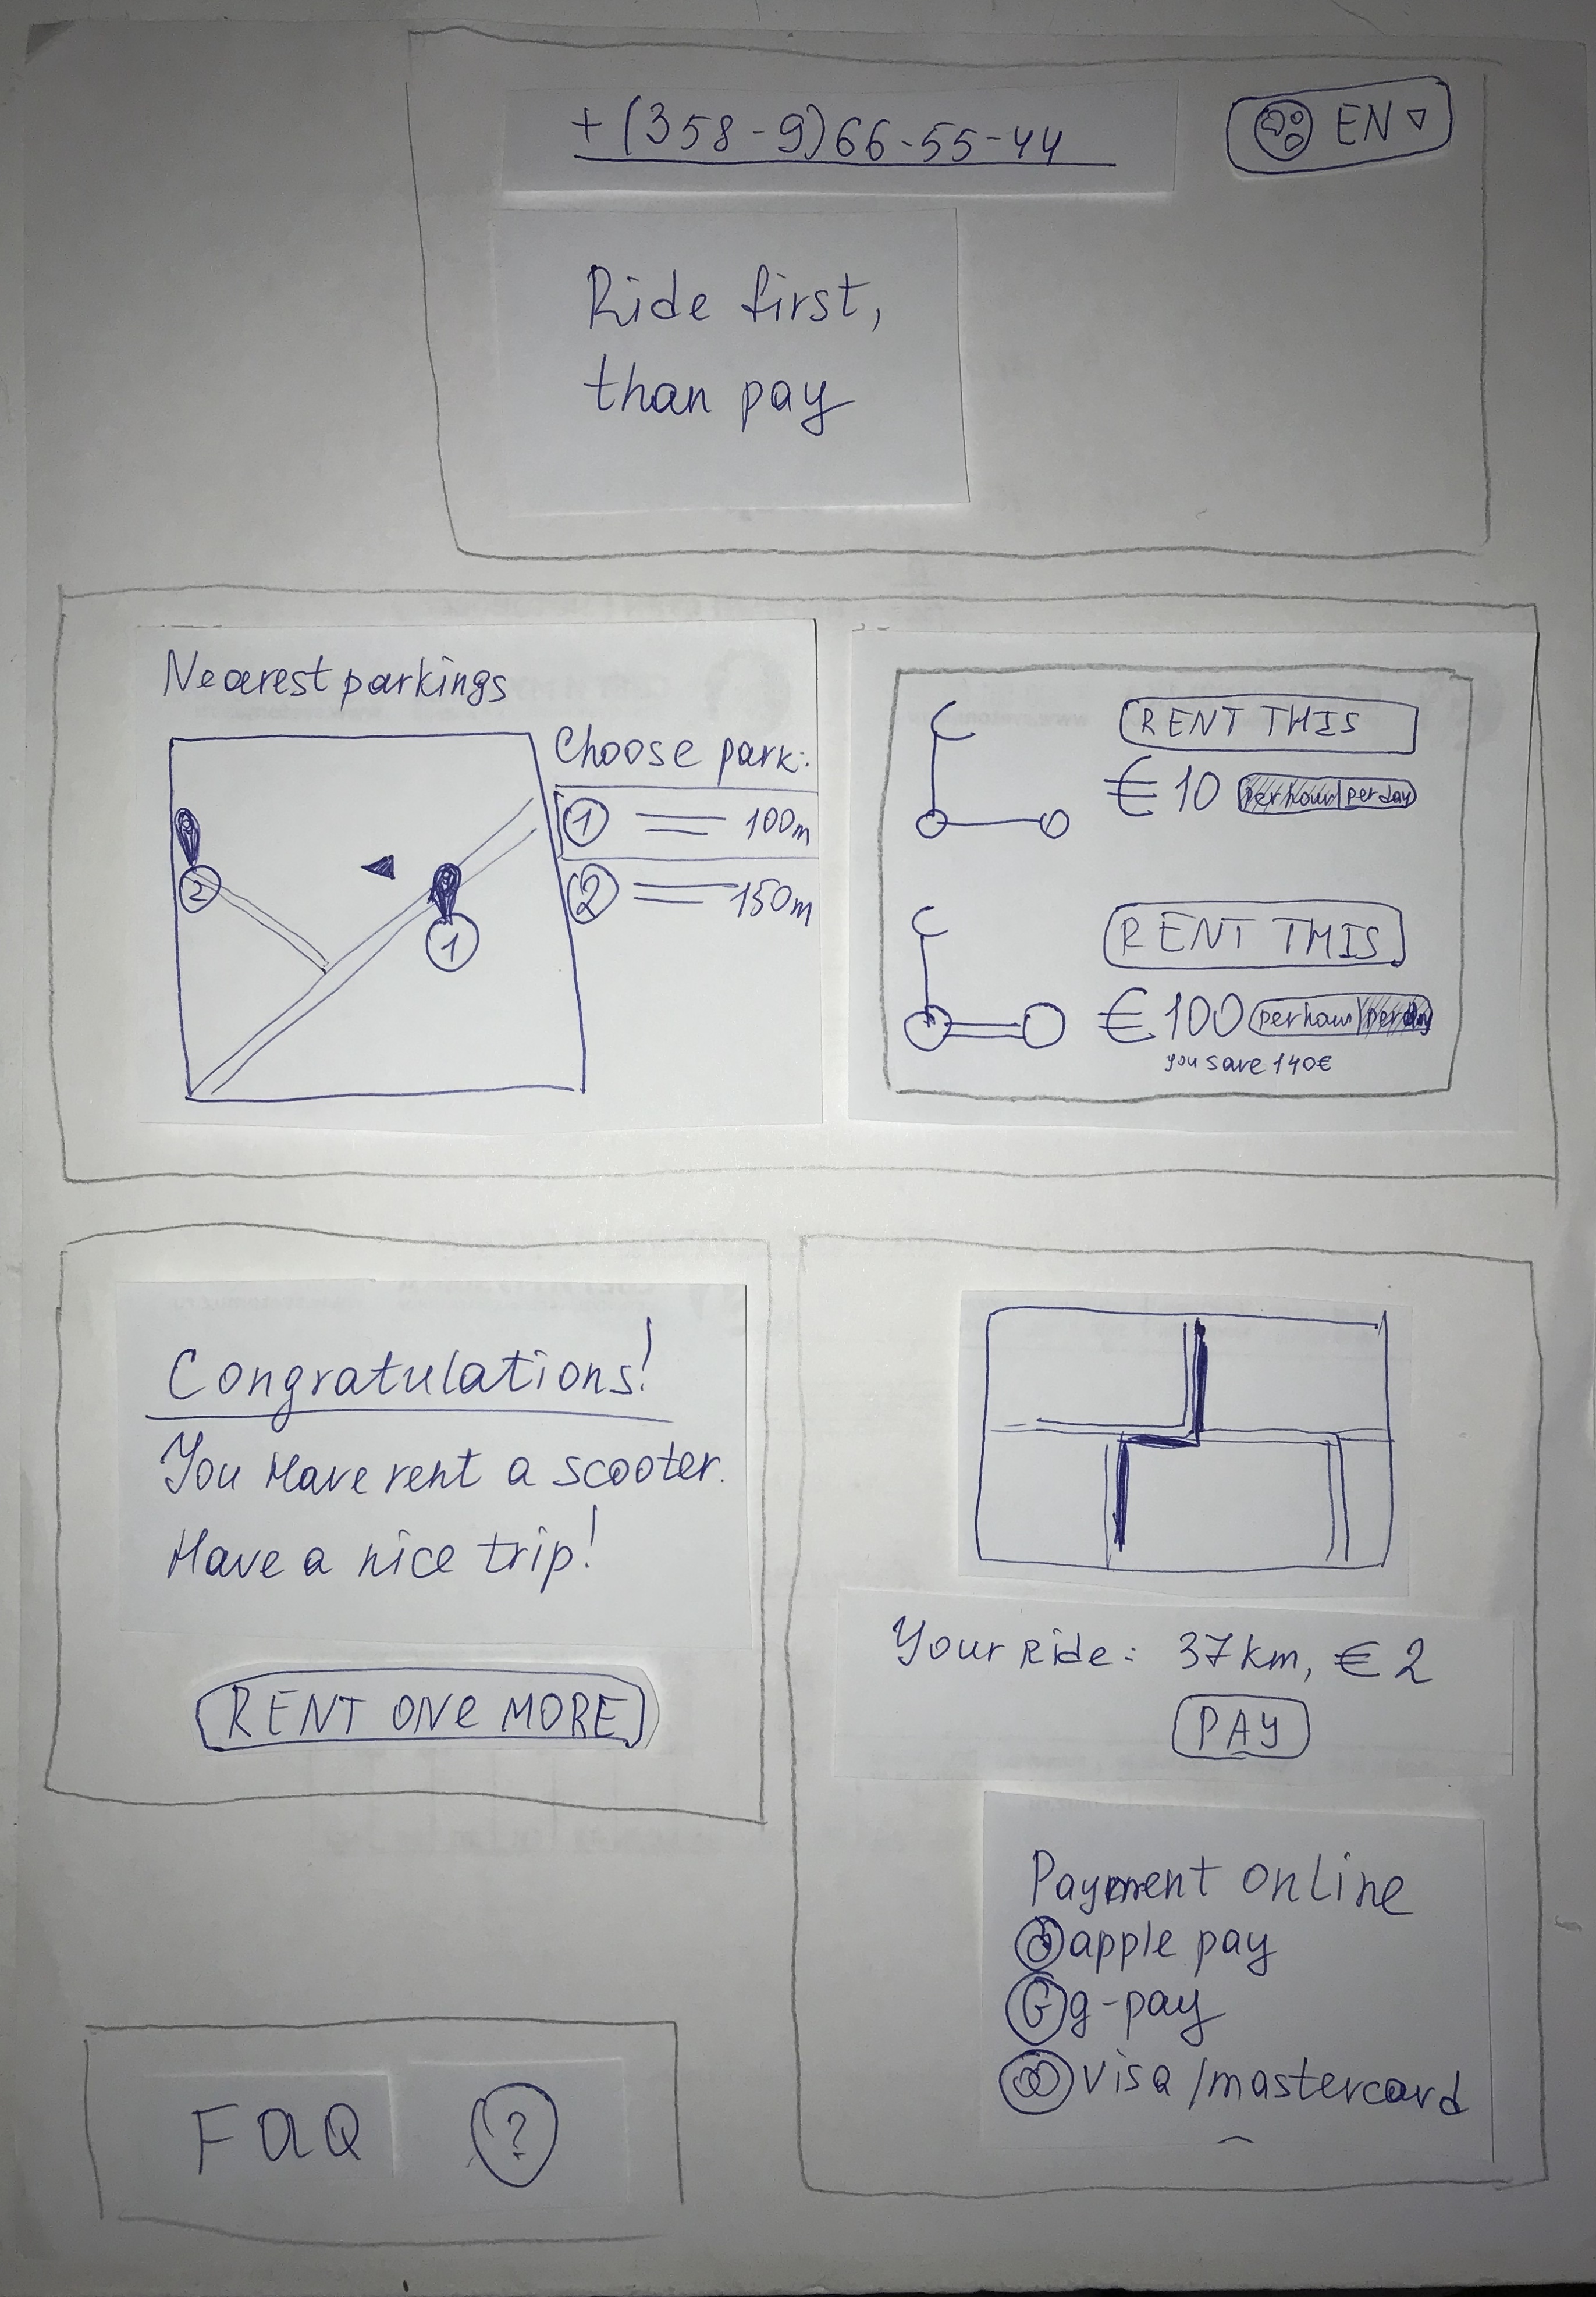 +(358-9)66-55-44
EN
Ride first,
than pay
Nearest parkings
Choose park:
1 100m
2 150m
2
1
RENT THIS
€10 per hour per day
RENT THIS
€100 per hour per day
you save 140€
Congratulations!
You Have rent a scooter.
Have a nice trip!
RENT ONE MORE
Your Ride: 37km, €2
PAY
Payment online
apple pay
G g-pay
visa/mastercard
FAQ ?